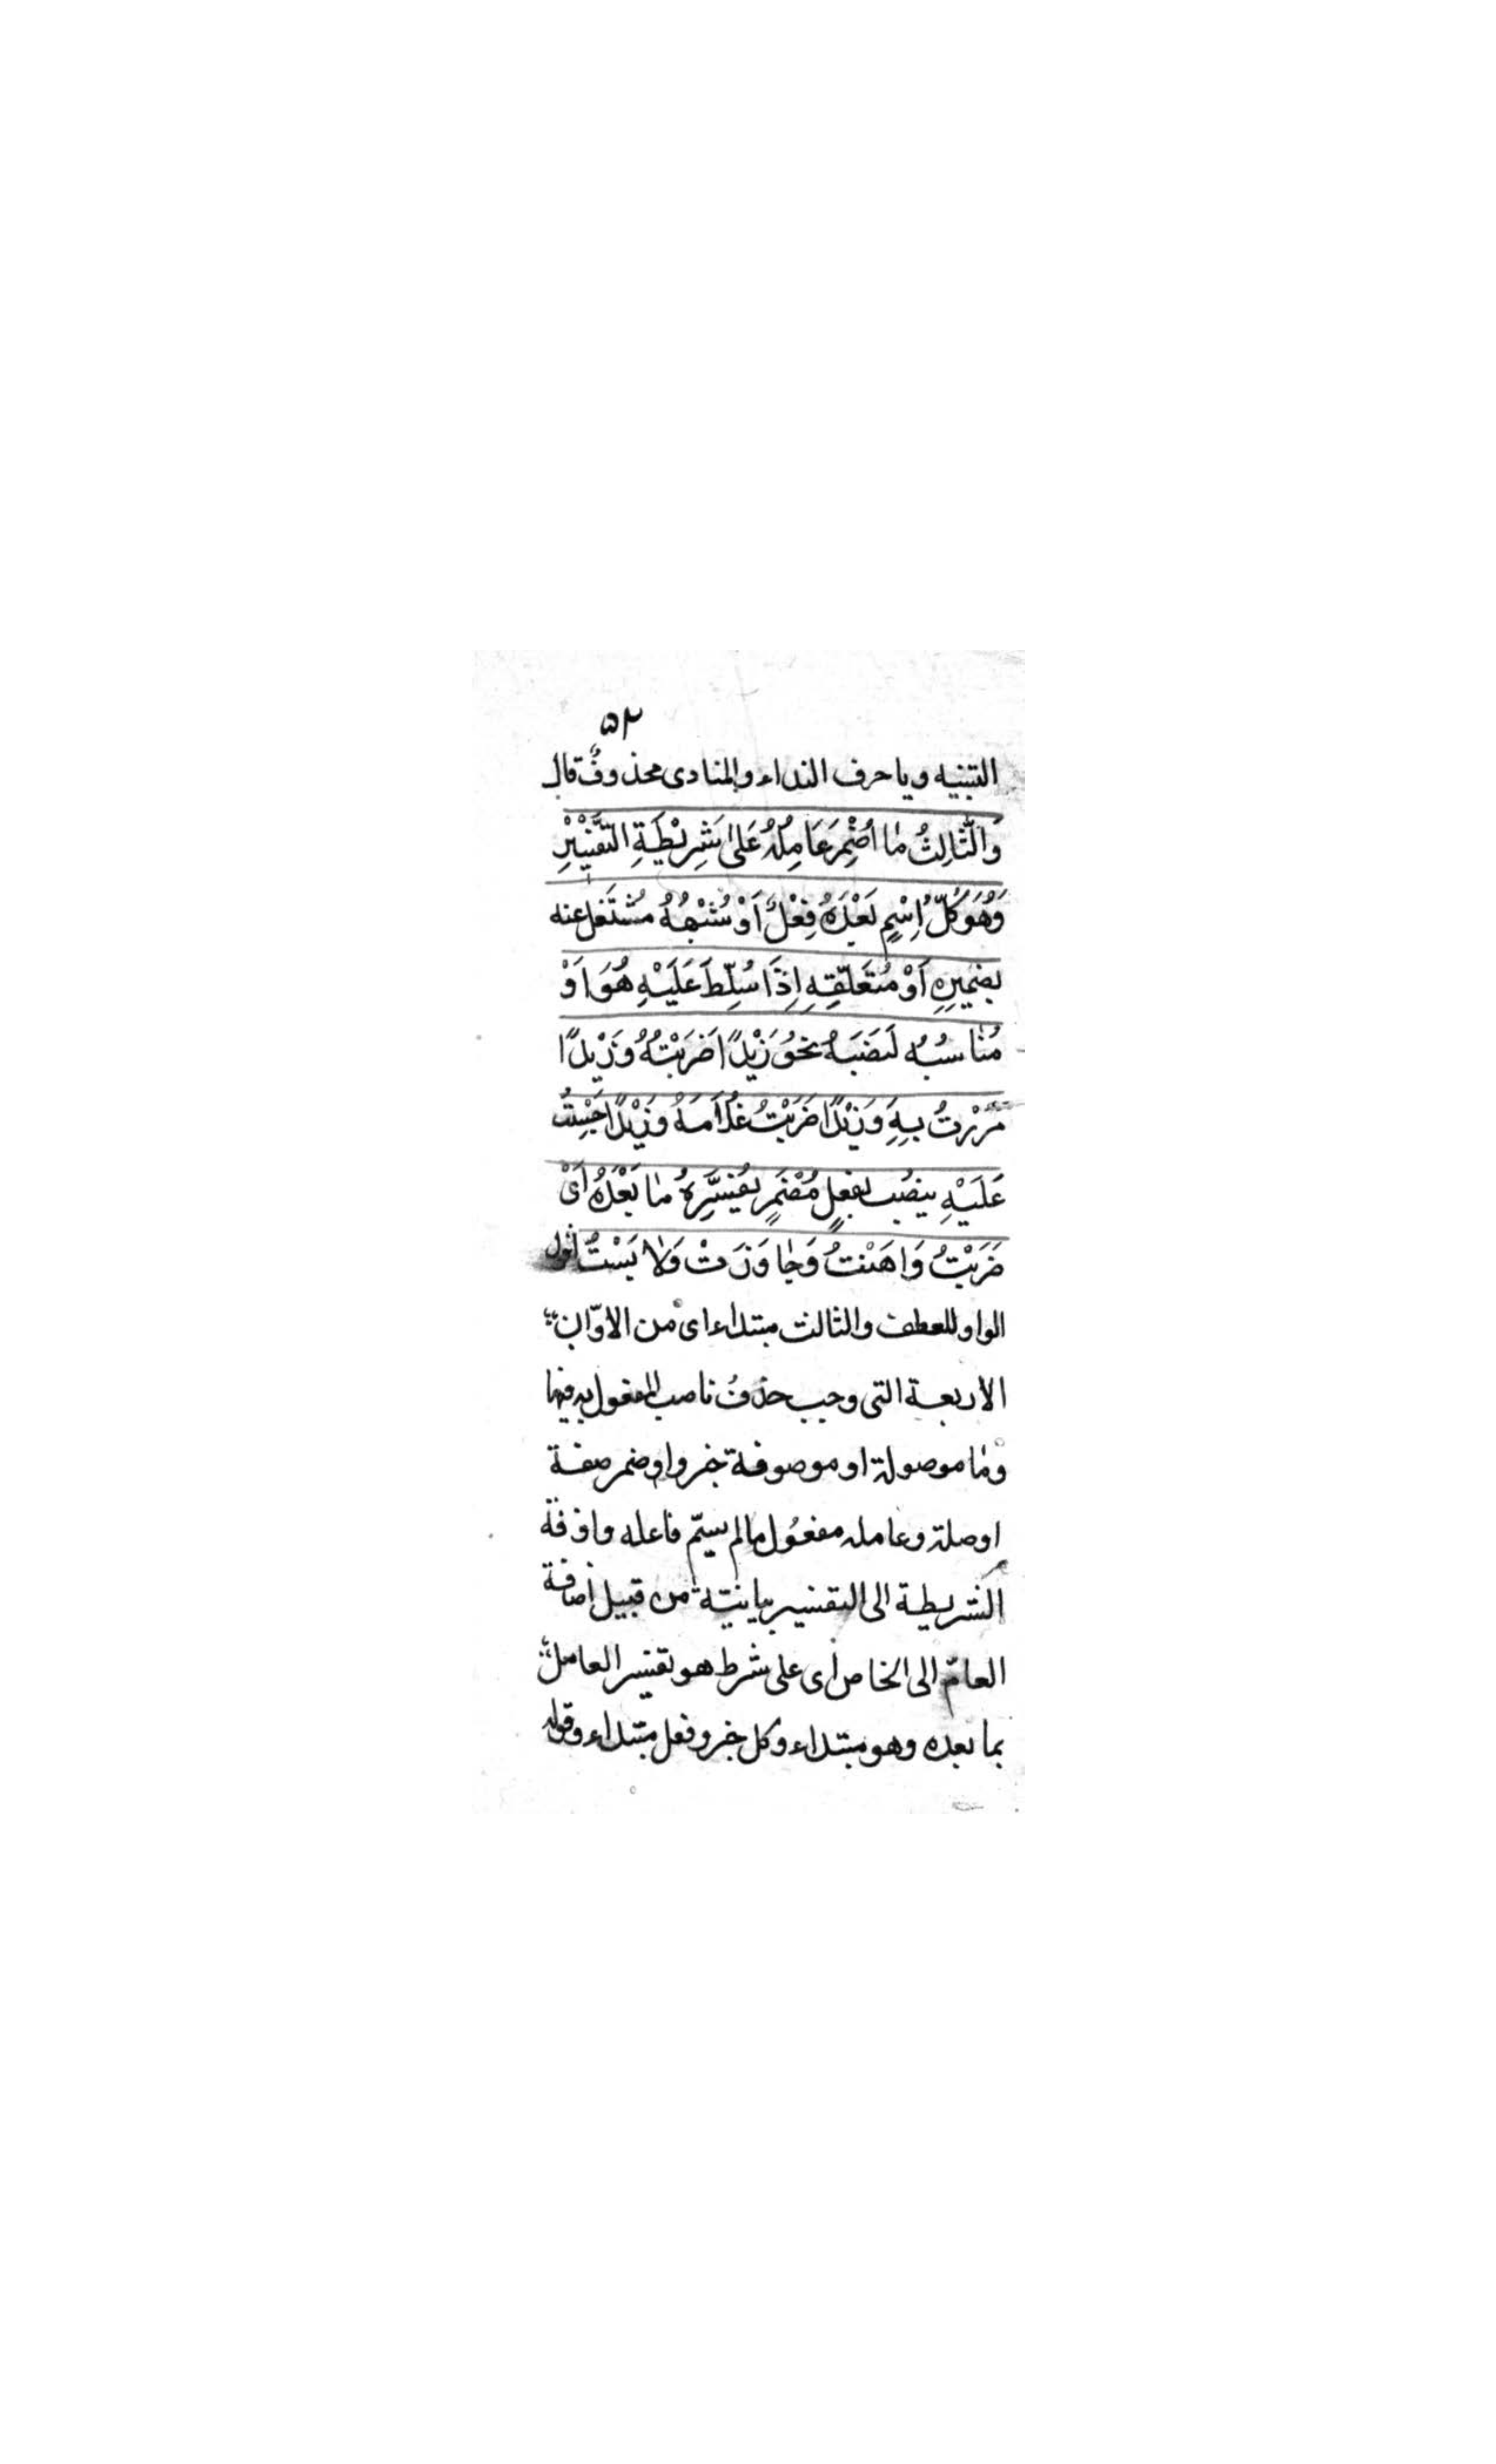 ۵۲
التنبيه ويا حرف النداء والمنادى محذوفٌ قال
وَالثَّالِثُ مٰا اُضْمِرَ عَامِلُهُ عَلىٰ شَرِيْطَةِ التَّفْسِيْرِ
وَهُوَ كُلُّ اِسْمٍ بَعْدَهُ فِعْلٌ اَوْ شِبْهُهُ مُشْتَغَل عنه
بِضَمِيرِهِ اَوْ مُتَعَلِّقِهِ اِذَا سُلِّطَ عَلَيْهِ هُوَ اَوْ
مُنٰاسِبُه لَنَصَبَهُ نحوُ زَيْدًا ضَرَبْتُهُ وَزَيْدًا
مَرَرْتُ بِهِ وَزَيْدًا ضَرَبْتُ غُلَامَهُ وَزَيْدًا حُبِسْتُ
عَلَيْهِ ينصُب بفِعلٍ مُضْمَرٍ يُفَسِّرُهُ مٰا بَعْدَهُ اَىْ
ضَرَبْتُ وَاَهَنْتُ وَجٰاوَزَتْ وَلٰابَسْتُ اقول
الواو للعطف والثالث مبتداء اى من الاوّان
الاربعة التى وجب حذفُ ناصب المفعول به فيها
ومٰا موصولة او موصوفة خبر واضمر صفة
اوصلة وعامله مفعُول مالم يسمّ فاعله واضافة
الشريطة الى التفسير بيانيّة من قبيل اضافة
العامّ الى الخاص اى على شرط هو تفسير العامل
بما بعده وهو مبتداء وكل خبر وفعل مبتداء وقوله